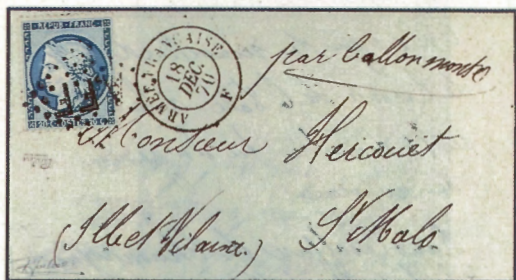 REPUB. FRANC.
ARMÉE FRANÇAISE
18
DEC.
70
F
par ballon monté
Monsieur Hercouet
St Malo
(Ille et Vilaine.)